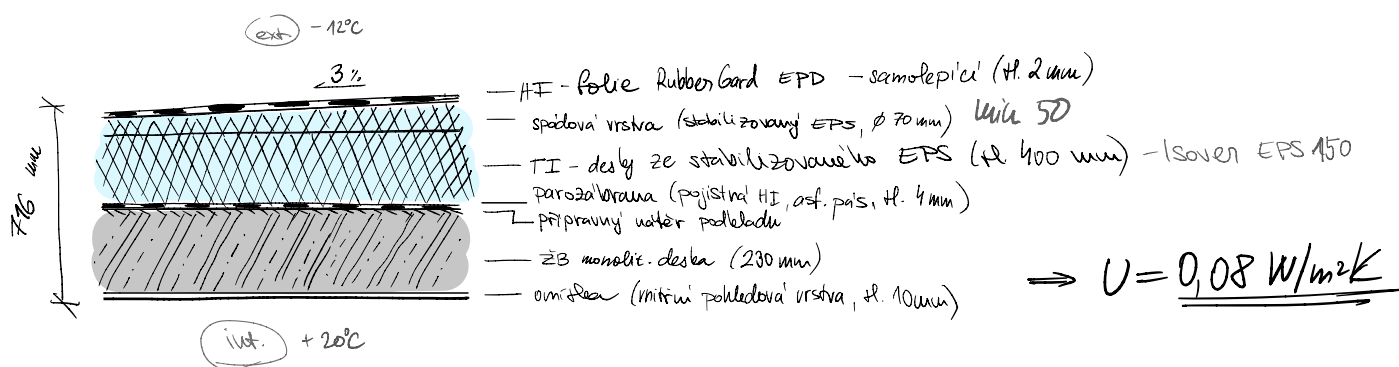 ext. -12°C
3%
HI - folie RubberGard EPD - samolepící (tl. 2 mm)
spádová vrstva (stabilizovaný EPS, ϕ 70 mm) min 50
TI - desky ze stabilizovaného EPS (tl 400 mm) - Isover EPS 150
parozábrana (pojistná HI, asf. pás, tl. 4 mm)
přípravný nátěr podkladu
ŽB monolit. deska (230 mm)
omítka (vnitřní pohledová vrstva, tl. 10 mm)
716 mm
⇒ U = 0,08 W/m²K
int. +20°C